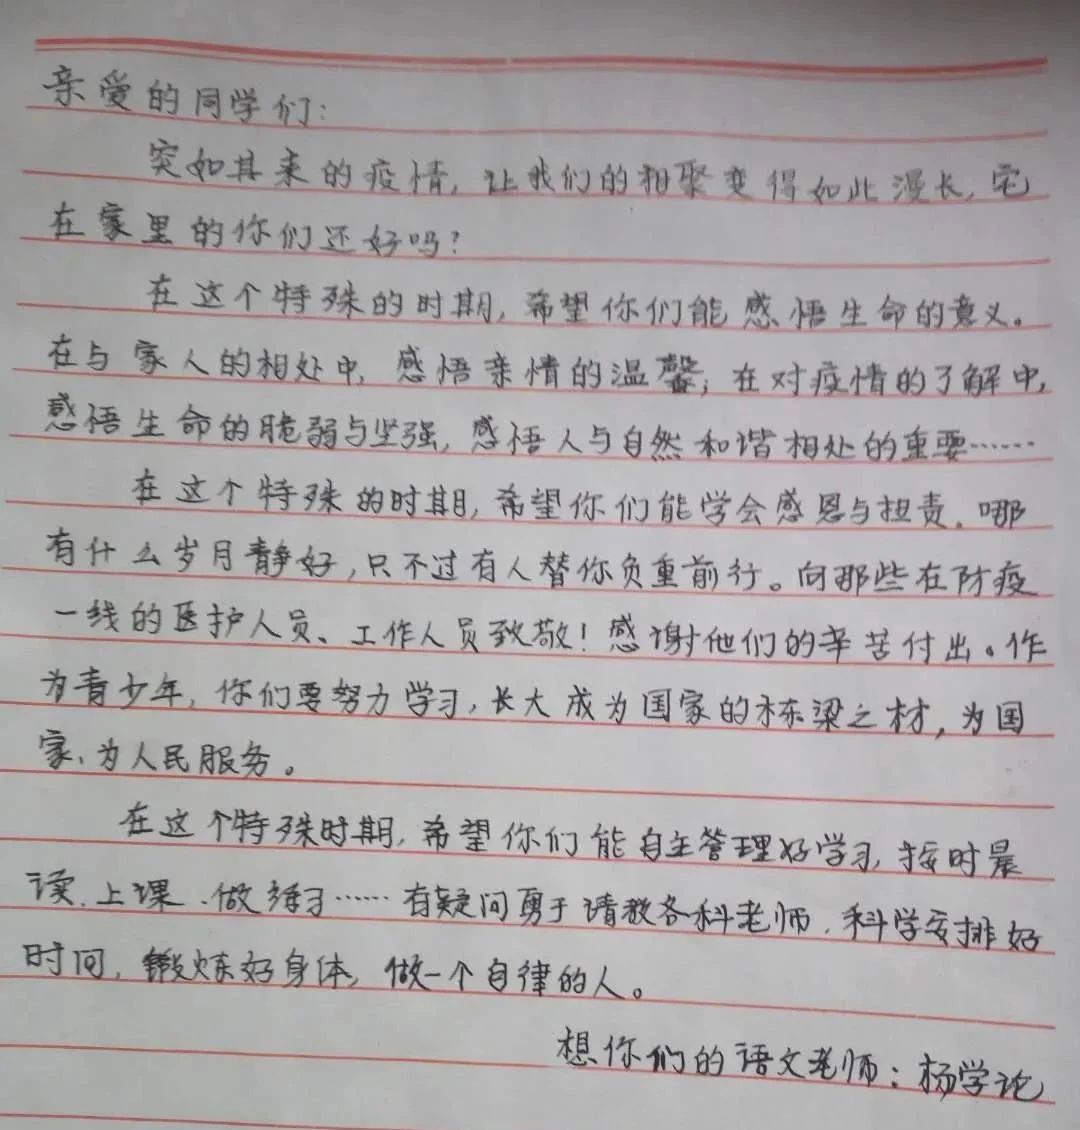 亲爱的同学们:
突如其来的疫情,让我们的相聚变得如此漫长,宅
在家里的你们还好吗?
在这个特殊的时期,希望你们能感悟生命的意义。
在与家人的相处中,感悟亲情的温馨;在对疫情的了解中,
感悟生命的脆弱与坚强,感悟人与自然和谐相处的重要……
在这个特殊的时期,希望你们能学会感恩与担责。哪
有什么岁月静好,只不过有人替你负重前行。向那些在防疫
一线的医护人员、工作人员致敬!感谢他们的辛苦付出。作
为青少年,你们要努力学习,长大成为国家的栋梁之材,为国
家、为人民服务。
在这个特殊时期,希望你们能自主管理好学习,按时晨
读、上课、做练习……有疑问勇于请教各科老师,科学安排好
时间,锻炼好身体,做一个自律的人。
想你们的语文老师:杨学论